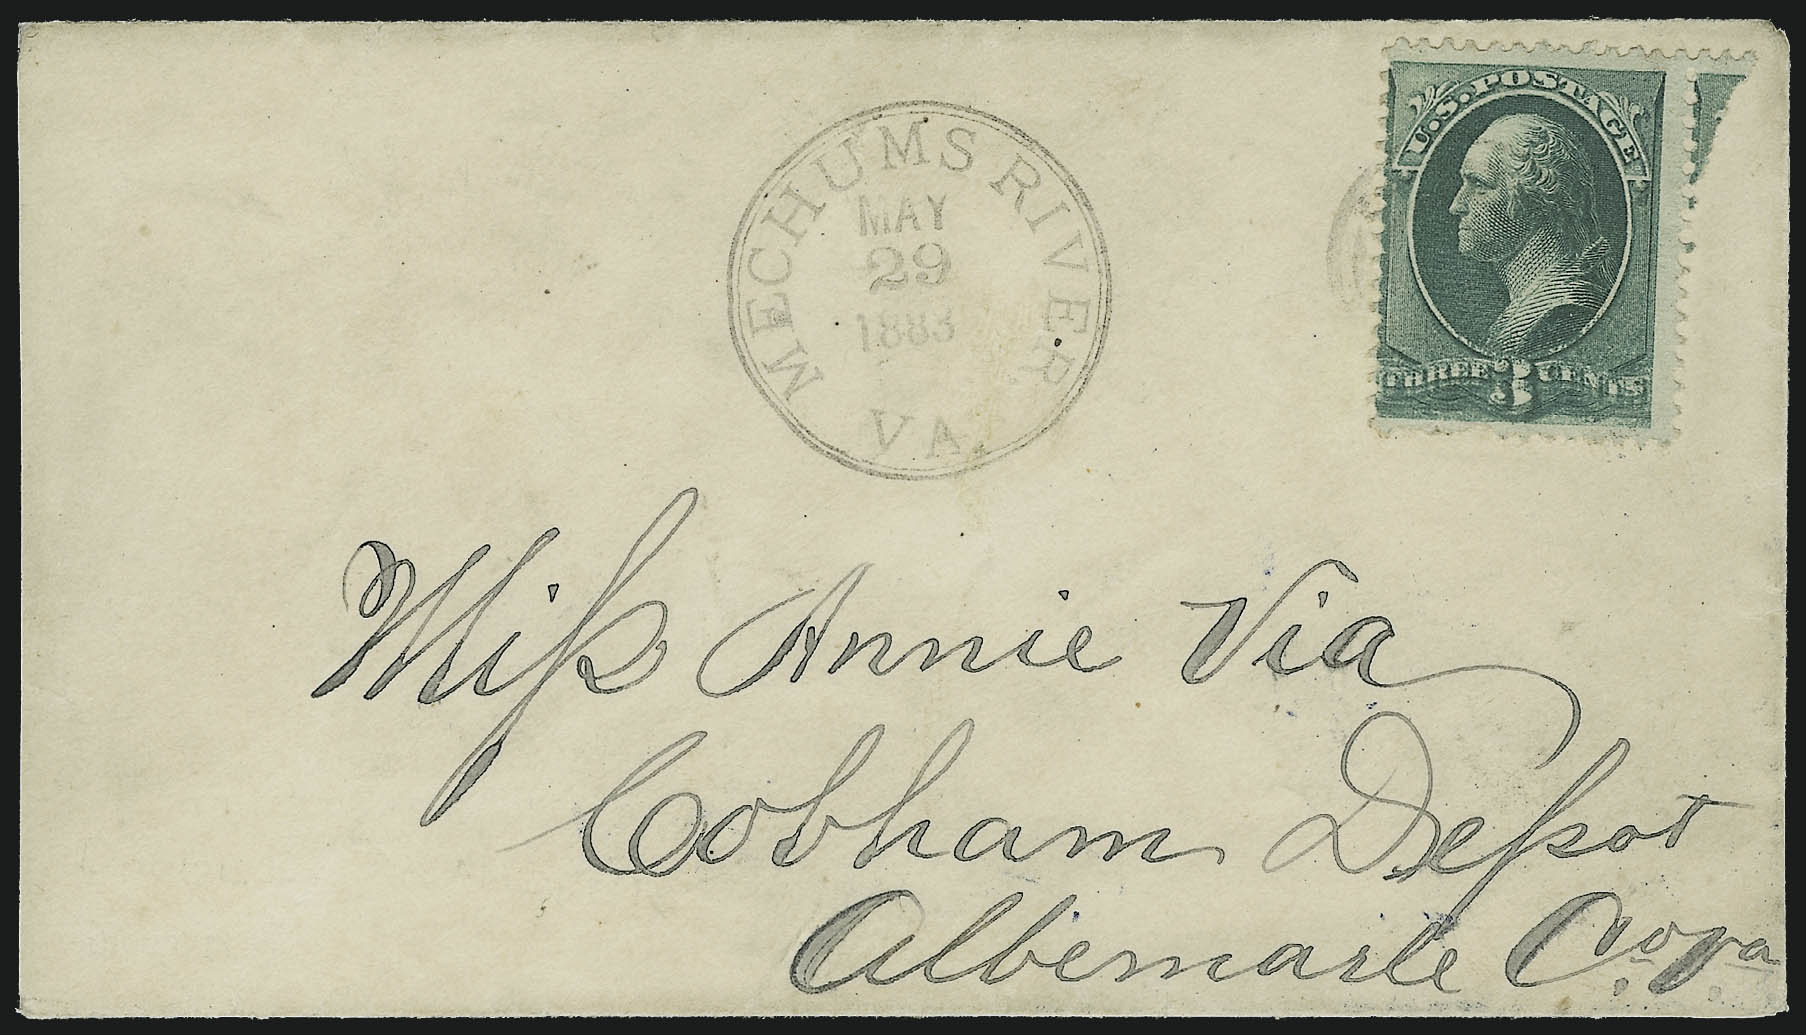 MECHUMS RIVER
MAY
29
1883
VA.
U.S. POSTAGE
THREE 3 CENTS
Miss Annie Via
Cobham Depot
Albemarle Co. Va